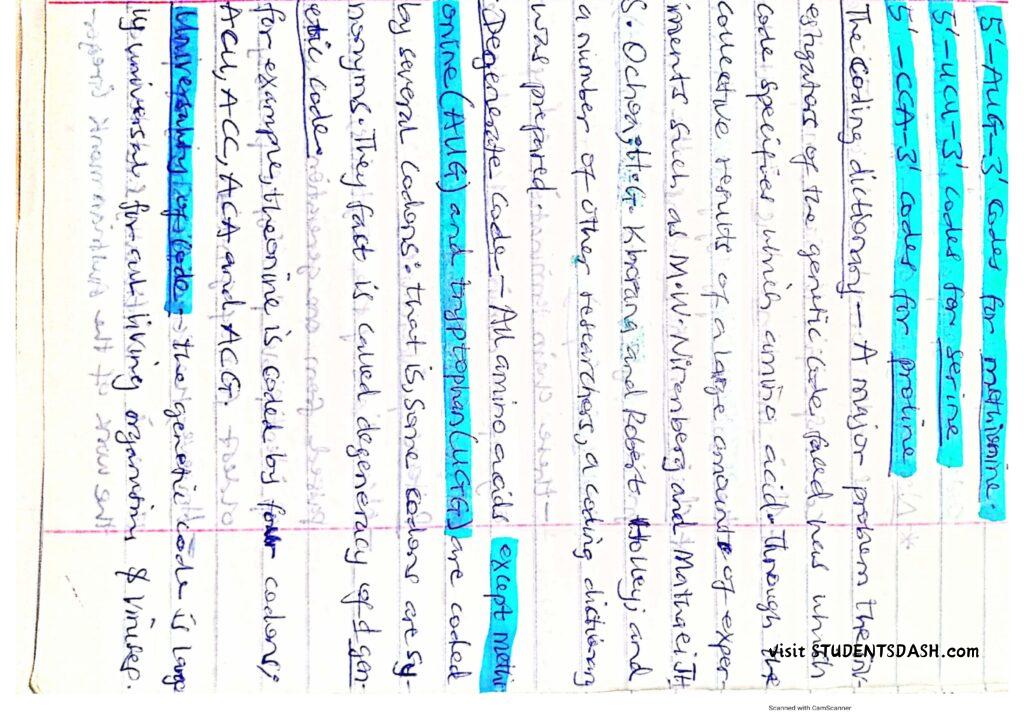 5'-AUG-3' codes for methionine.
5'-UCU-3' codes for serine
5'-CCA-3' codes for proline
The coding dictionary - A major problem the inv-
estigators of the genetic code faced was which
code specifies which amino acid. Through the
collective results of a large amount of exper-
iments such as M.W. Nirenberg and Matthaei JH
S. Ochoa, H.G. Khorana and Robert Holley, and
a number of other researchers, a coding dictionary
was prepared.
Degenerate code - All amino acids except methi
onine (AUG) and tryptophan (UGG) are coded
by several codons: that is, some codons are sy-
nonyms. They fast is called degeneracy of gen-
etic code.
for example, theonine is coded by four codons;
ACU, ACC, ACA and ACG.
Universality of code - the genetic code is large
ly universal for all living organism & viruses.
visit STUDENTSDASH.com
Scanned with CamScanner